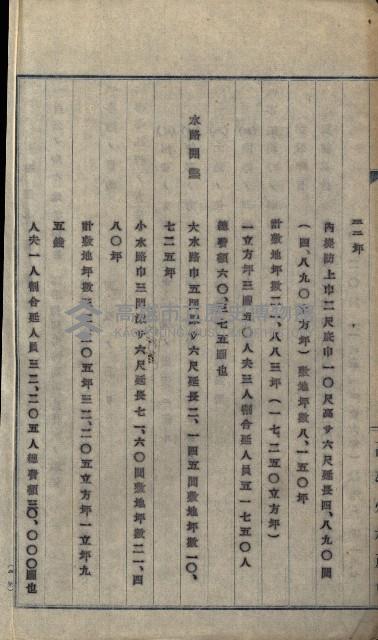 三二坪
內堤防上巾二尺底巾一〇尺高サ六尺延長四、八九〇間
(四、八九〇立方坪)敷地坪數八、一五〇坪
計敷地坪數二一、八八三坪(一七、二五〇立方坪)
一立方坪三圓五〇人夫三人割合延人員五一七五〇人
總費額六〇、三七五圓也
水路開鑿
大水路巾五間深サ六尺延長二、一四五間敷地坪數一〇、
七二五坪
小水路巾三間深サ六尺延長七一、六〇間敷地坪數二一、四
八〇坪
計敷地坪數三二、二〇五坪三二、二〇五立方坪一立坪九
五錢
人夫一人割合延人員三二、二〇五人總費額三〇、〇〇〇圓也
高雄市立歷史博物館
KAOHSIUNG MUSEUM OF HISTORY